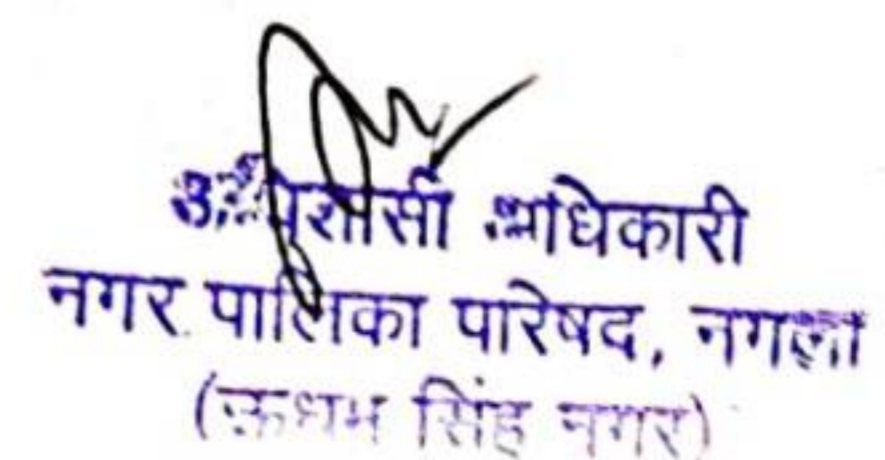 अधिशासी अधिकारी
नगर पालिका परिषद, नगला
(ऊधम सिंह नगर)